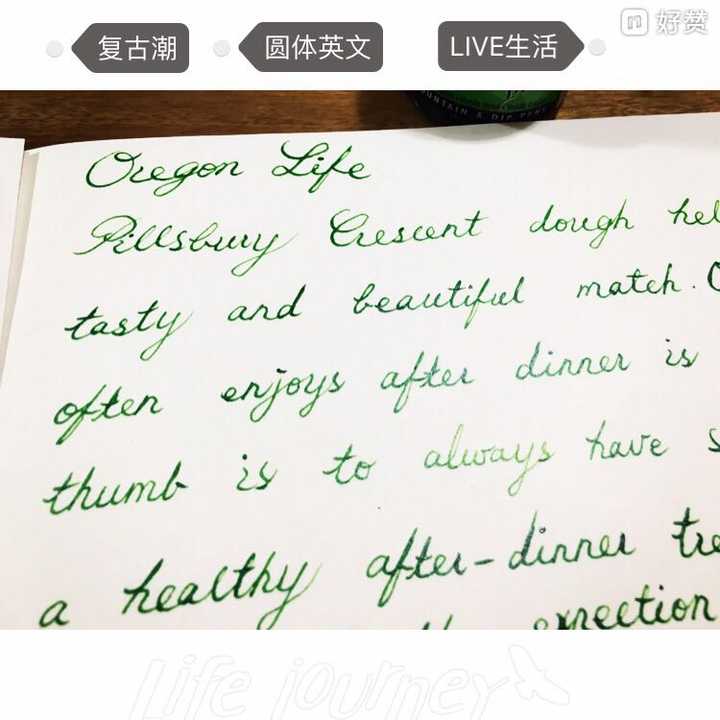 好赞
复古潮 圆体英文 LIVE生活
UNTAIN & DIP PENS
Oregon Life
Pillsbury Crescent dough hel
tasty and beautiful match. O
often enjoys after dinner is
thumb is to always have s
a healthy after-dinner tre
Life journey